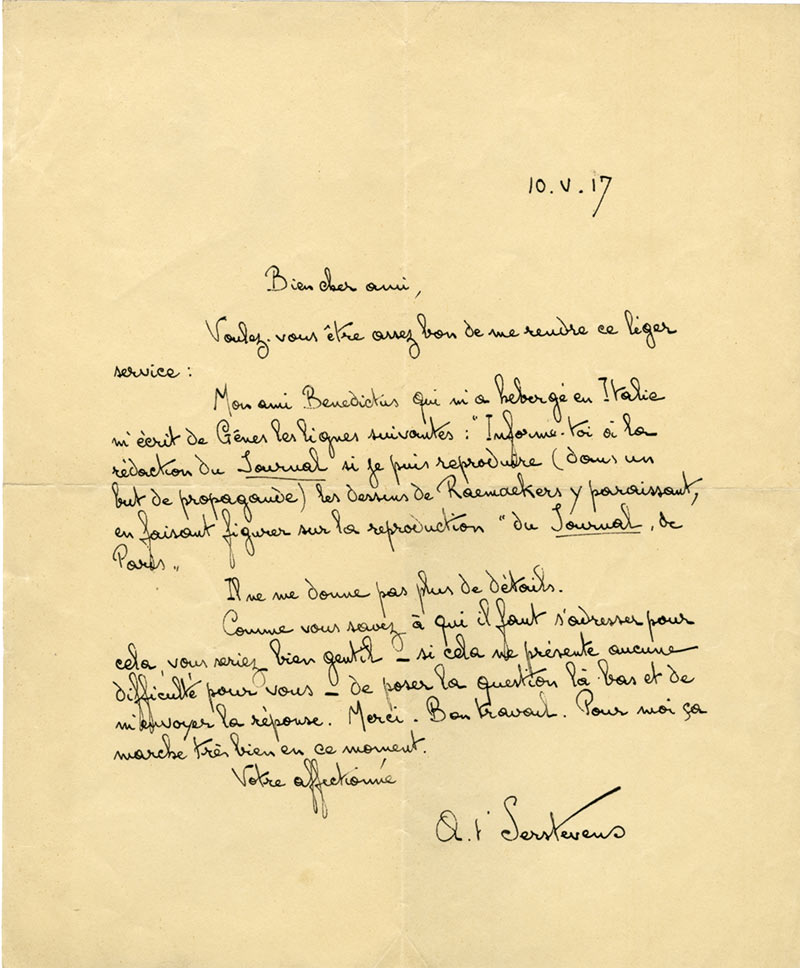 10.V.17
Bien cher ami,
Voulez-vous être assez bon de me rendre ce léger
service :
Mon ami Benedictus qui m'a hebergé en Italie
m'écrit de Gênes les lignes suivantes : "Informe-toi à la
rédaction du Journal si je puis reproduire (dans un
but de propagande) les dessins de Raemaekers y paraissant,
en faisant figurer sur la reproduction "du Journal, de
Paris„
Il ne me donne pas plus de détails.
Comme vous savez à qui il faut s'adresser pour
cela, vous seriez bien gentil – si cela ne présente aucune
difficulté pour vous – de poser la question là-bas et de
m'envoyer la réponse. Merci. Bon travail. Pour moi ça
marche très bien en ce moment.
Votre affectionné
A. t' Serstevens